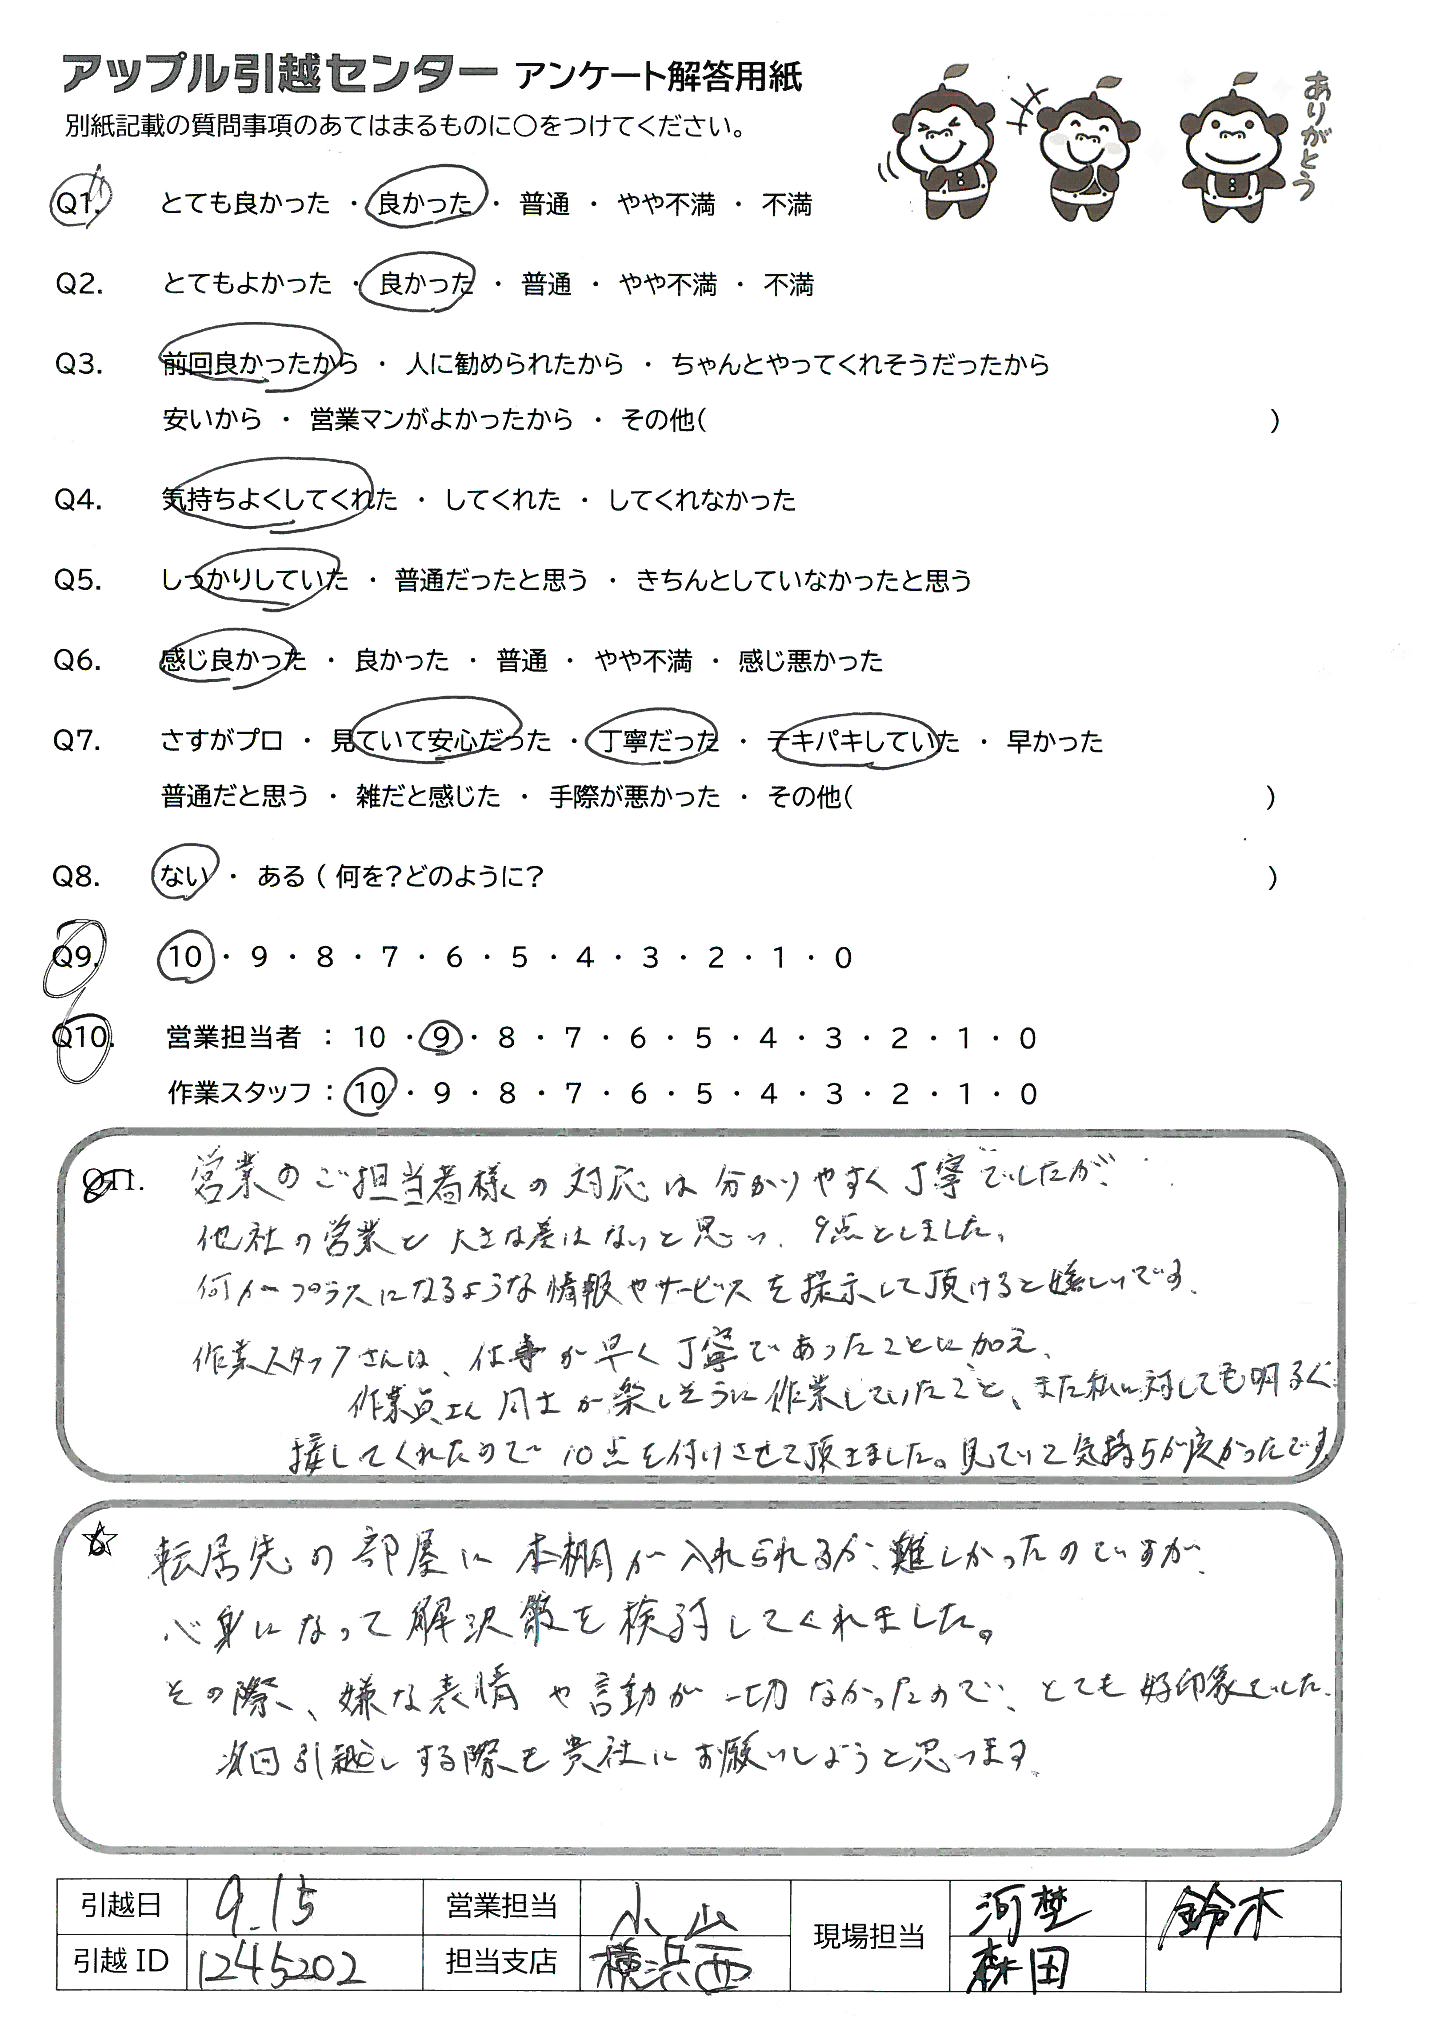 アップル引越センター アンケート解答用紙
別紙記載の質問事項のあてはまるものに○をつけてください。
ありがとう
Q1. とても良かった ・ 良かった ・ 普通 ・ やや不満 ・ 不満
Q2. とてもよかった ・ 良かった ・ 普通 ・ やや不満 ・ 不満
Q3. 前回良かったから ・ 人に勧められたから ・ ちゃんとやってくれそうだったから
安いから ・ 営業マンがよかったから ・ その他( )
Q4. 気持ちよくしてくれた ・ してくれた ・ してくれなかった
Q5. しっかりしていた ・ 普通だったと思う ・ きちんとしていなかったと思う
Q6. 感じ良かった ・ 良かった ・ 普通 ・ やや不満 ・ 感じ悪かった
Q7. さすがプロ ・ 見ていて安心だった ・ 丁寧だった ・ テキパキしていた ・ 早かった
普通だと思う ・ 雑だと感じた ・ 手際が悪かった ・ その他( )
Q8. ない ・ ある ( 何を?どのように? )
Q9. 10 ・ 9 ・ 8 ・ 7 ・ 6 ・ 5 ・ 4 ・ 3 ・ 2 ・ 1 ・ 0
Q10. 営業担当者 : 10 ・ 9 ・ 8 ・ 7 ・ 6 ・ 5 ・ 4 ・ 3 ・ 2 ・ 1 ・ 0
作業スタッフ : 10 ・ 9 ・ 8 ・ 7 ・ 6 ・ 5 ・ 4 ・ 3 ・ 2 ・ 1 ・ 0
Q11. 営業のご担当者様の対応は分かりやすく丁寧でしたが、
他社の営業と大きな差はないと思い、9点としました。
何かプラスになるような情報やサービスを提示して頂けると嬉しいです。
作業スタッフさんは、仕事が早く丁寧であったことに加え、
作業員さん同士が楽しそうに作業していたこと、また私に対しても明るく
接してくれたので10点を付けさせて頂きました。見ていて気持ちが良かったです
☆ 転居先の部屋に本棚が入れられるか、難しかったのですが、
心身になって解決策を検討してくれました。
その際、嫌な表情や言動が一切なかったので、とても好印象でした。
次回引越しする際も貴社にお願いしようと思います。
引越日 9.15 営業担当 小山 現場担当 河埜 鈴木
引越ID 1245202 担当支店 横浜西 森田